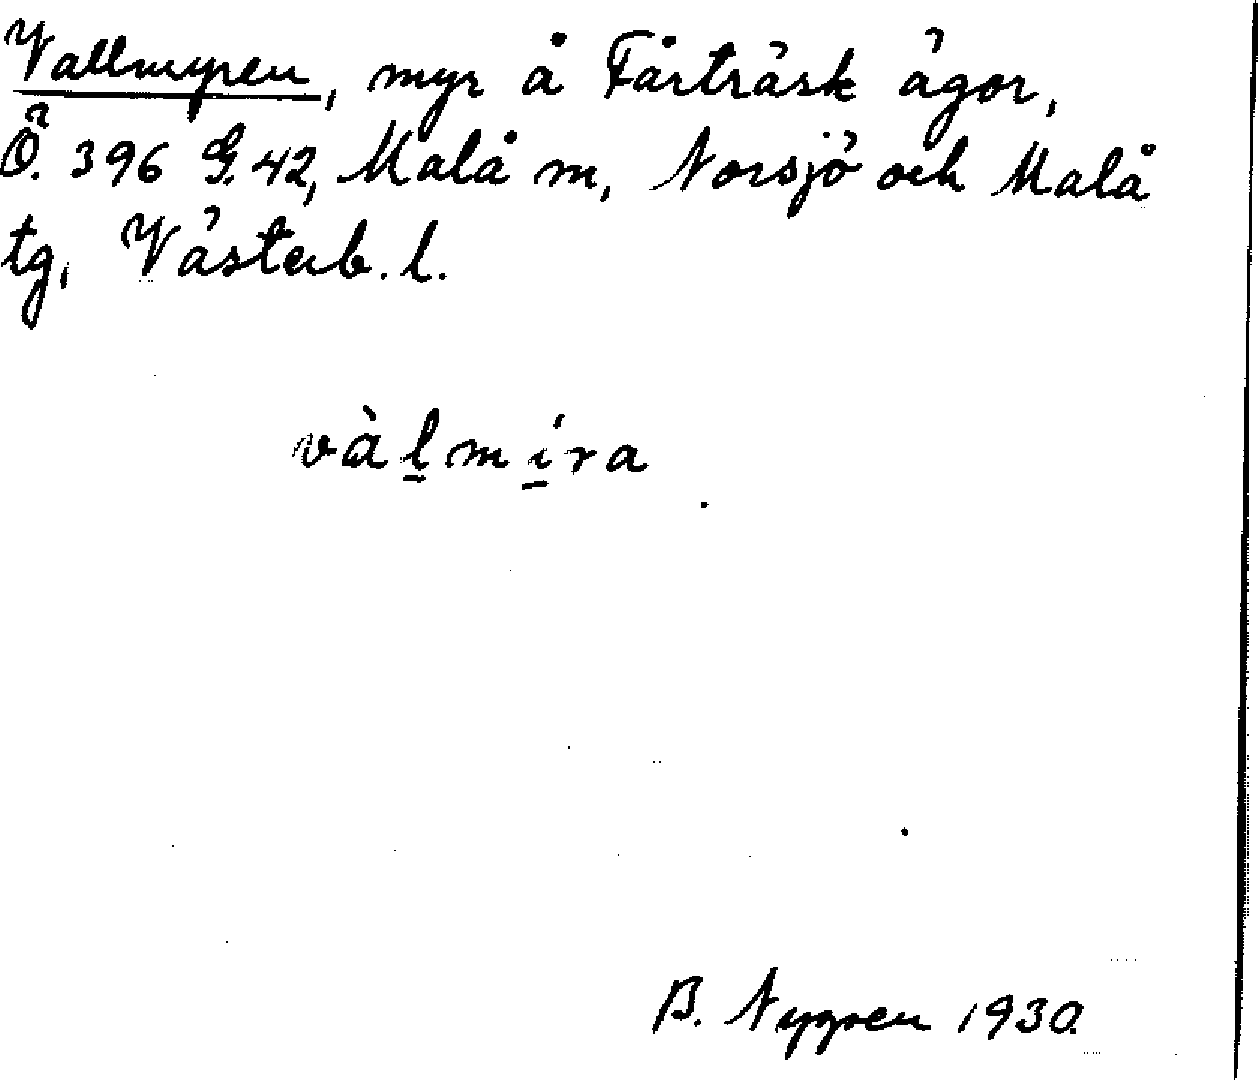 Vallmyren, myr å Fårträsk ägor,
Ö. 396 G. 42, Malå m, Norsjö och Malå
tg, Västerb. l.
vàl̲mí̲ra
B. Nygren 1930.